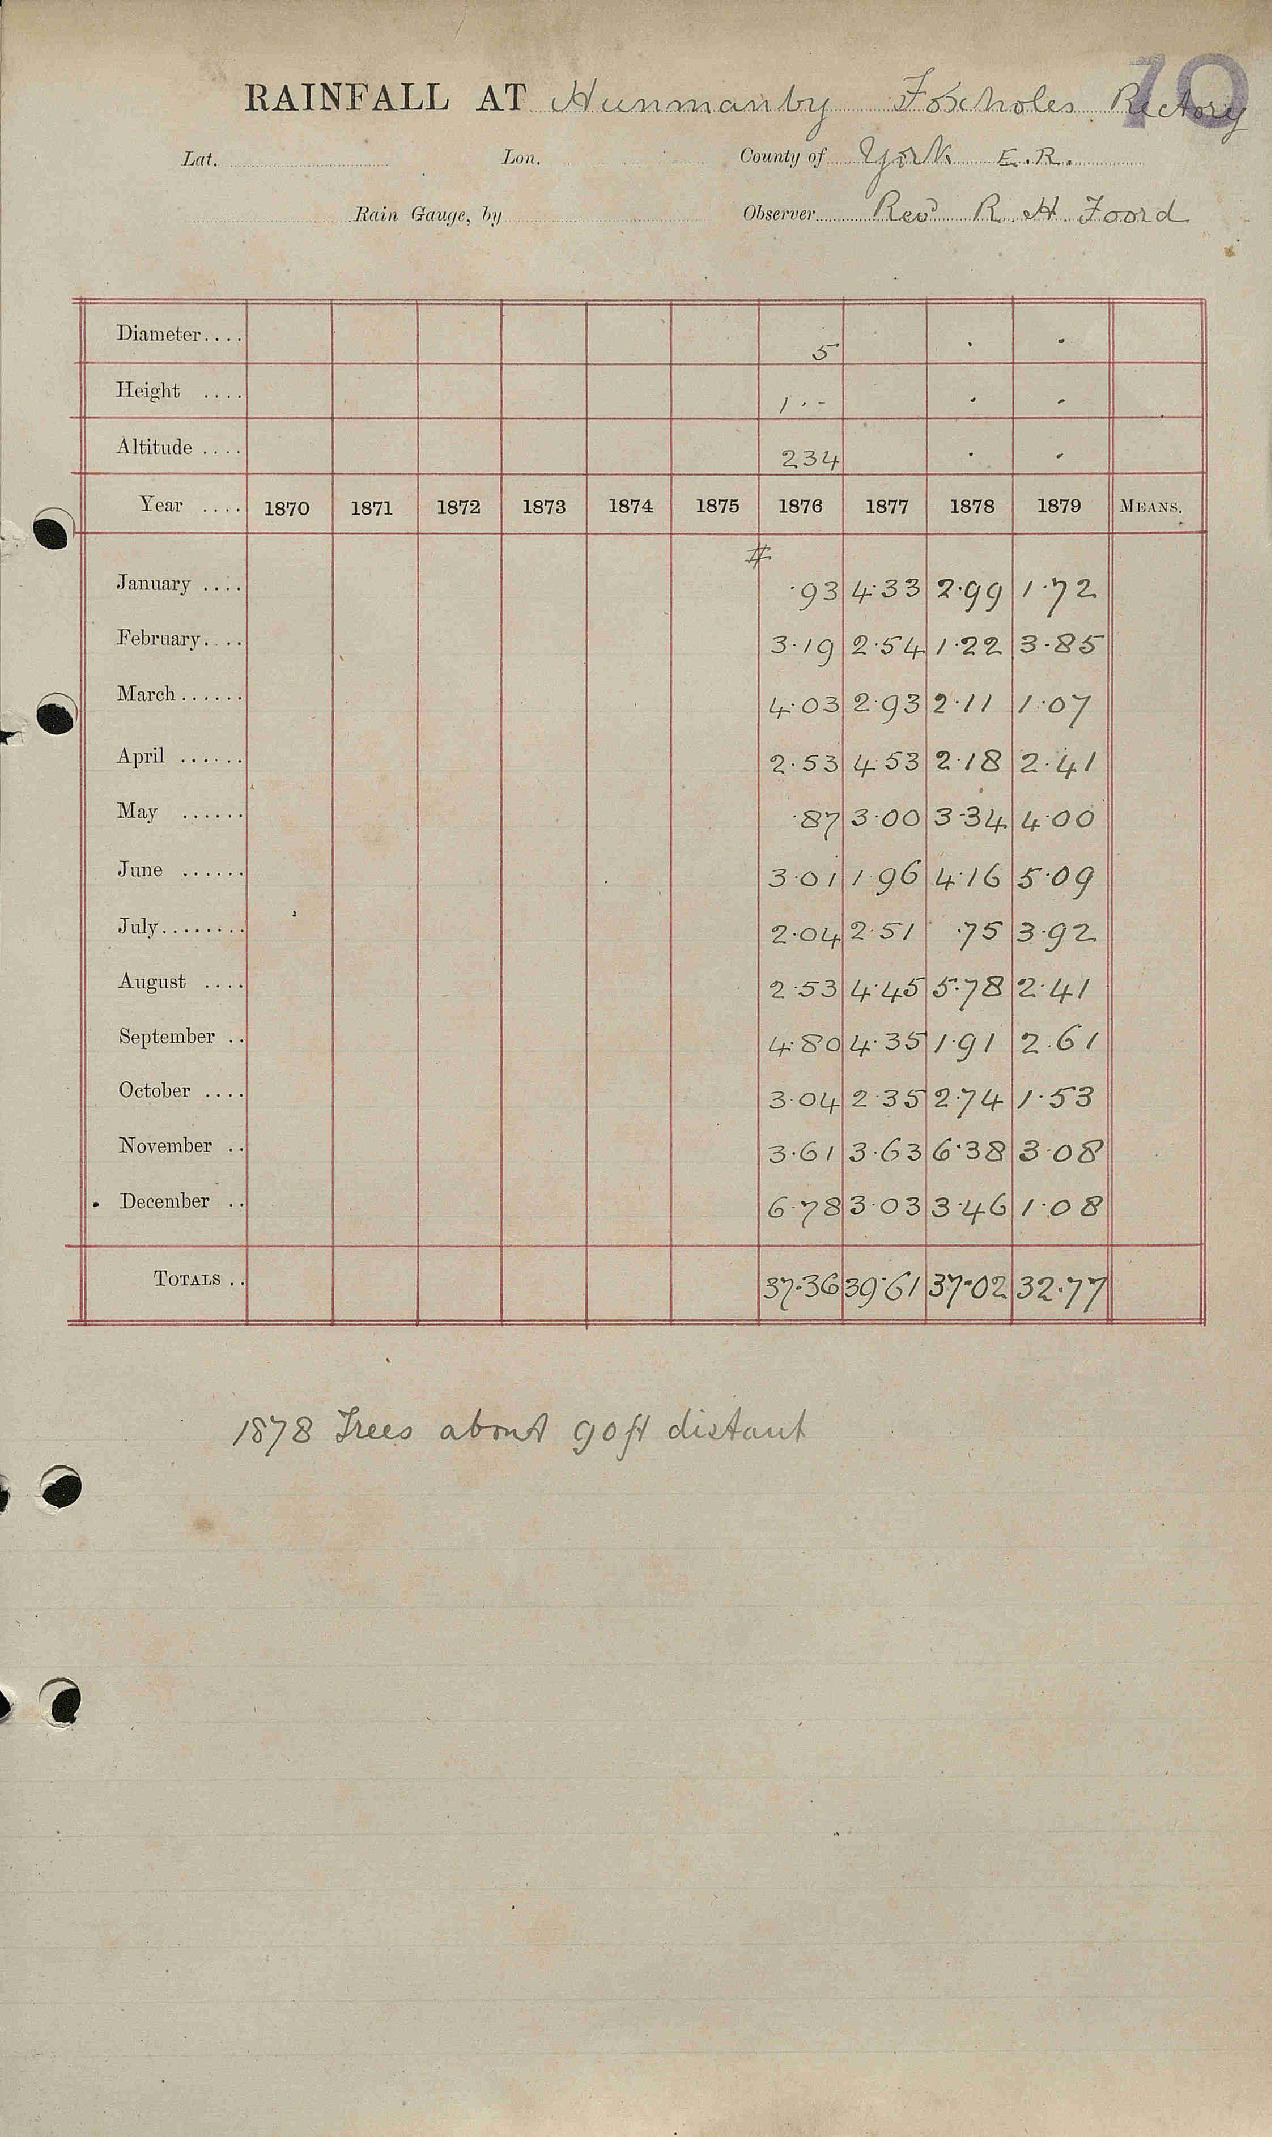 70
RAINFALL AT Hunmanby Foxholes Rectory
Lat. Lon. County of York E.R.
Rain Gauge, by Observer Revd R. H. Foord
Diameter.... 5 . .
Height .... 1 . - . .
Altitude .... 234 . .
Year .... 1870 1871 1872 1873 1874 1875 1876 1877 1878 1879 MEANS.
#
January .... .93 4.33 2.99 1.72
February.... 3.19 2.54 1.22 3.85
March...... 4.03 2.93 2.11 1.07
April ...... 2.53 4.53 2.18 2.41
May ...... .87 3.00 3.34 4.00
June ...... 3.01 1.96 4.16 5.09
July........ 2.04 2.51 .75 3.92
August .... 2.53 4.45 5.78 2.41
September .. 4.80 4.35 1.91 2.61
October .... 3.04 2.35 2.74 1.53
November .. 3.61 3.63 6.38 3.08
December .. 6.78 3.03 3.46 1.08
TOTALS .. 37.36 39.61 37.02 32.77
1878 Trees about 90ft distant